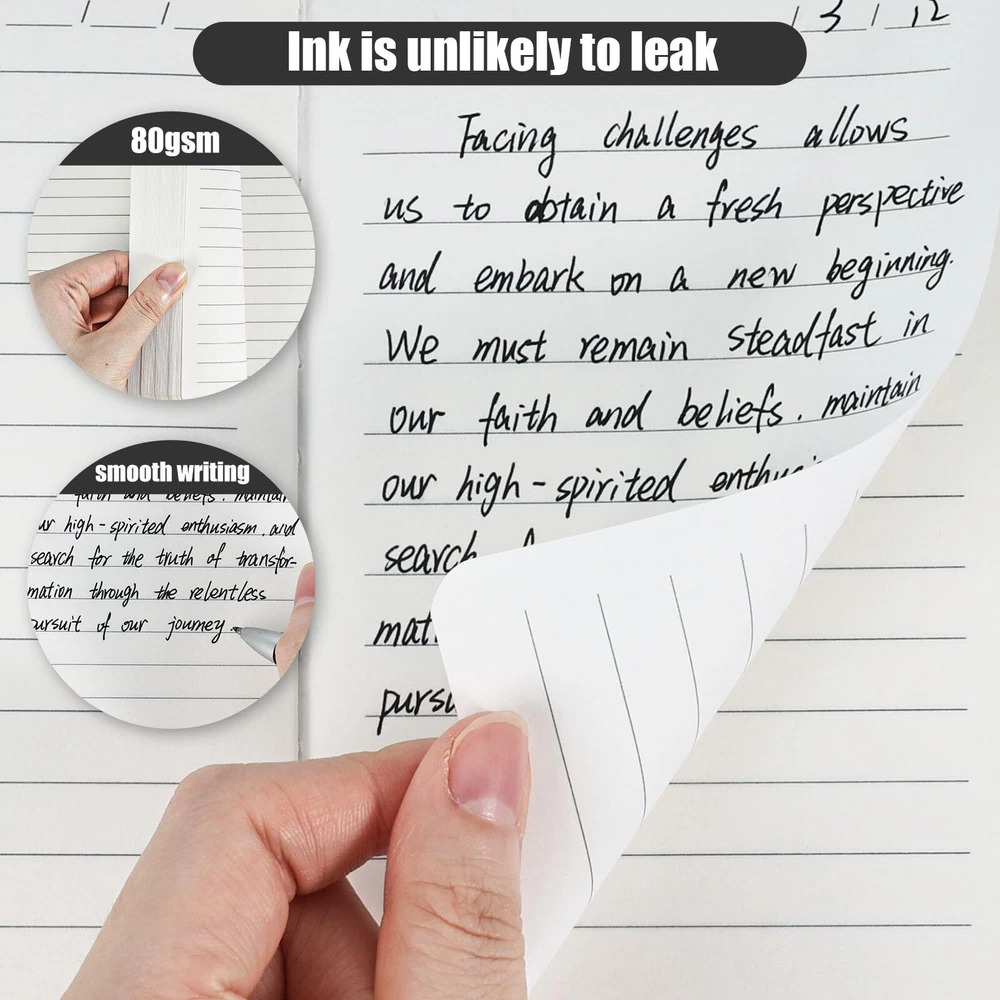 Ink is unlikely to leak
/ /
/ 3 / 12
80gsm
Facing challenges allows
us to obtain a fresh perspective
and embark on a new beginning.
We must remain steadfast in
our faith and beliefs. maintain
our high-spirited
search
pursu
smooth writing
faith and beliefs. maintain
ur high-spirited enthusiasm. and
search for the truth of transfor-
mation through the relentless
ursuit of our journey.